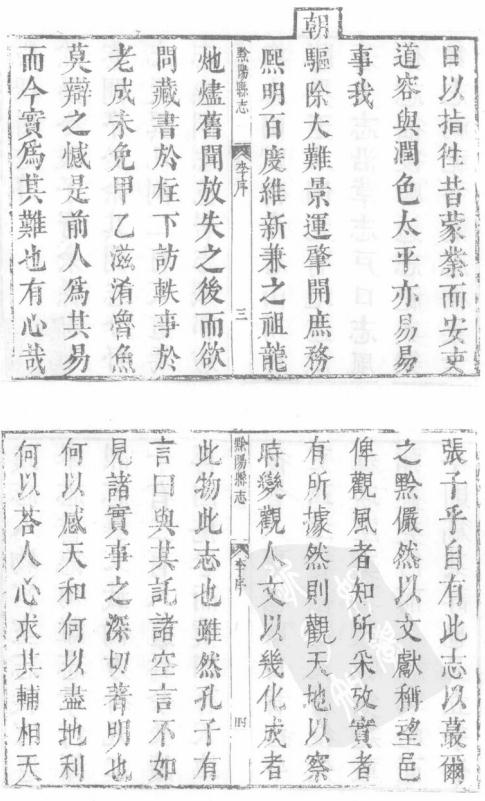 日以指徃昔蒙業而安吏
道容與潤色太平亦易易
事我
朝
驅除大難景運肇開庶務
熙明百度維新兼之祖龍
黔陽縣志
李序
三
灺燼舊聞放失之後而欲
問藏書於柱下訪軼事於
老成未免甲乙滋淆魯魚
莫辯之憾是前人爲其易
而今實爲其難也有心哉
張子乎自有此志以蕞爾
之黔儼然以文獻稱望邑
俾觀風者知所采攷實者
有所據然則觀天地以察
時變觀人文以幾化成者
黔陽縣志
李序
四
此物此志也雖然孔子有
言曰與其託諸空言不如
見諸實事之深切著明也
何以感天和何以盡地利
何以荅人心求其輔相天